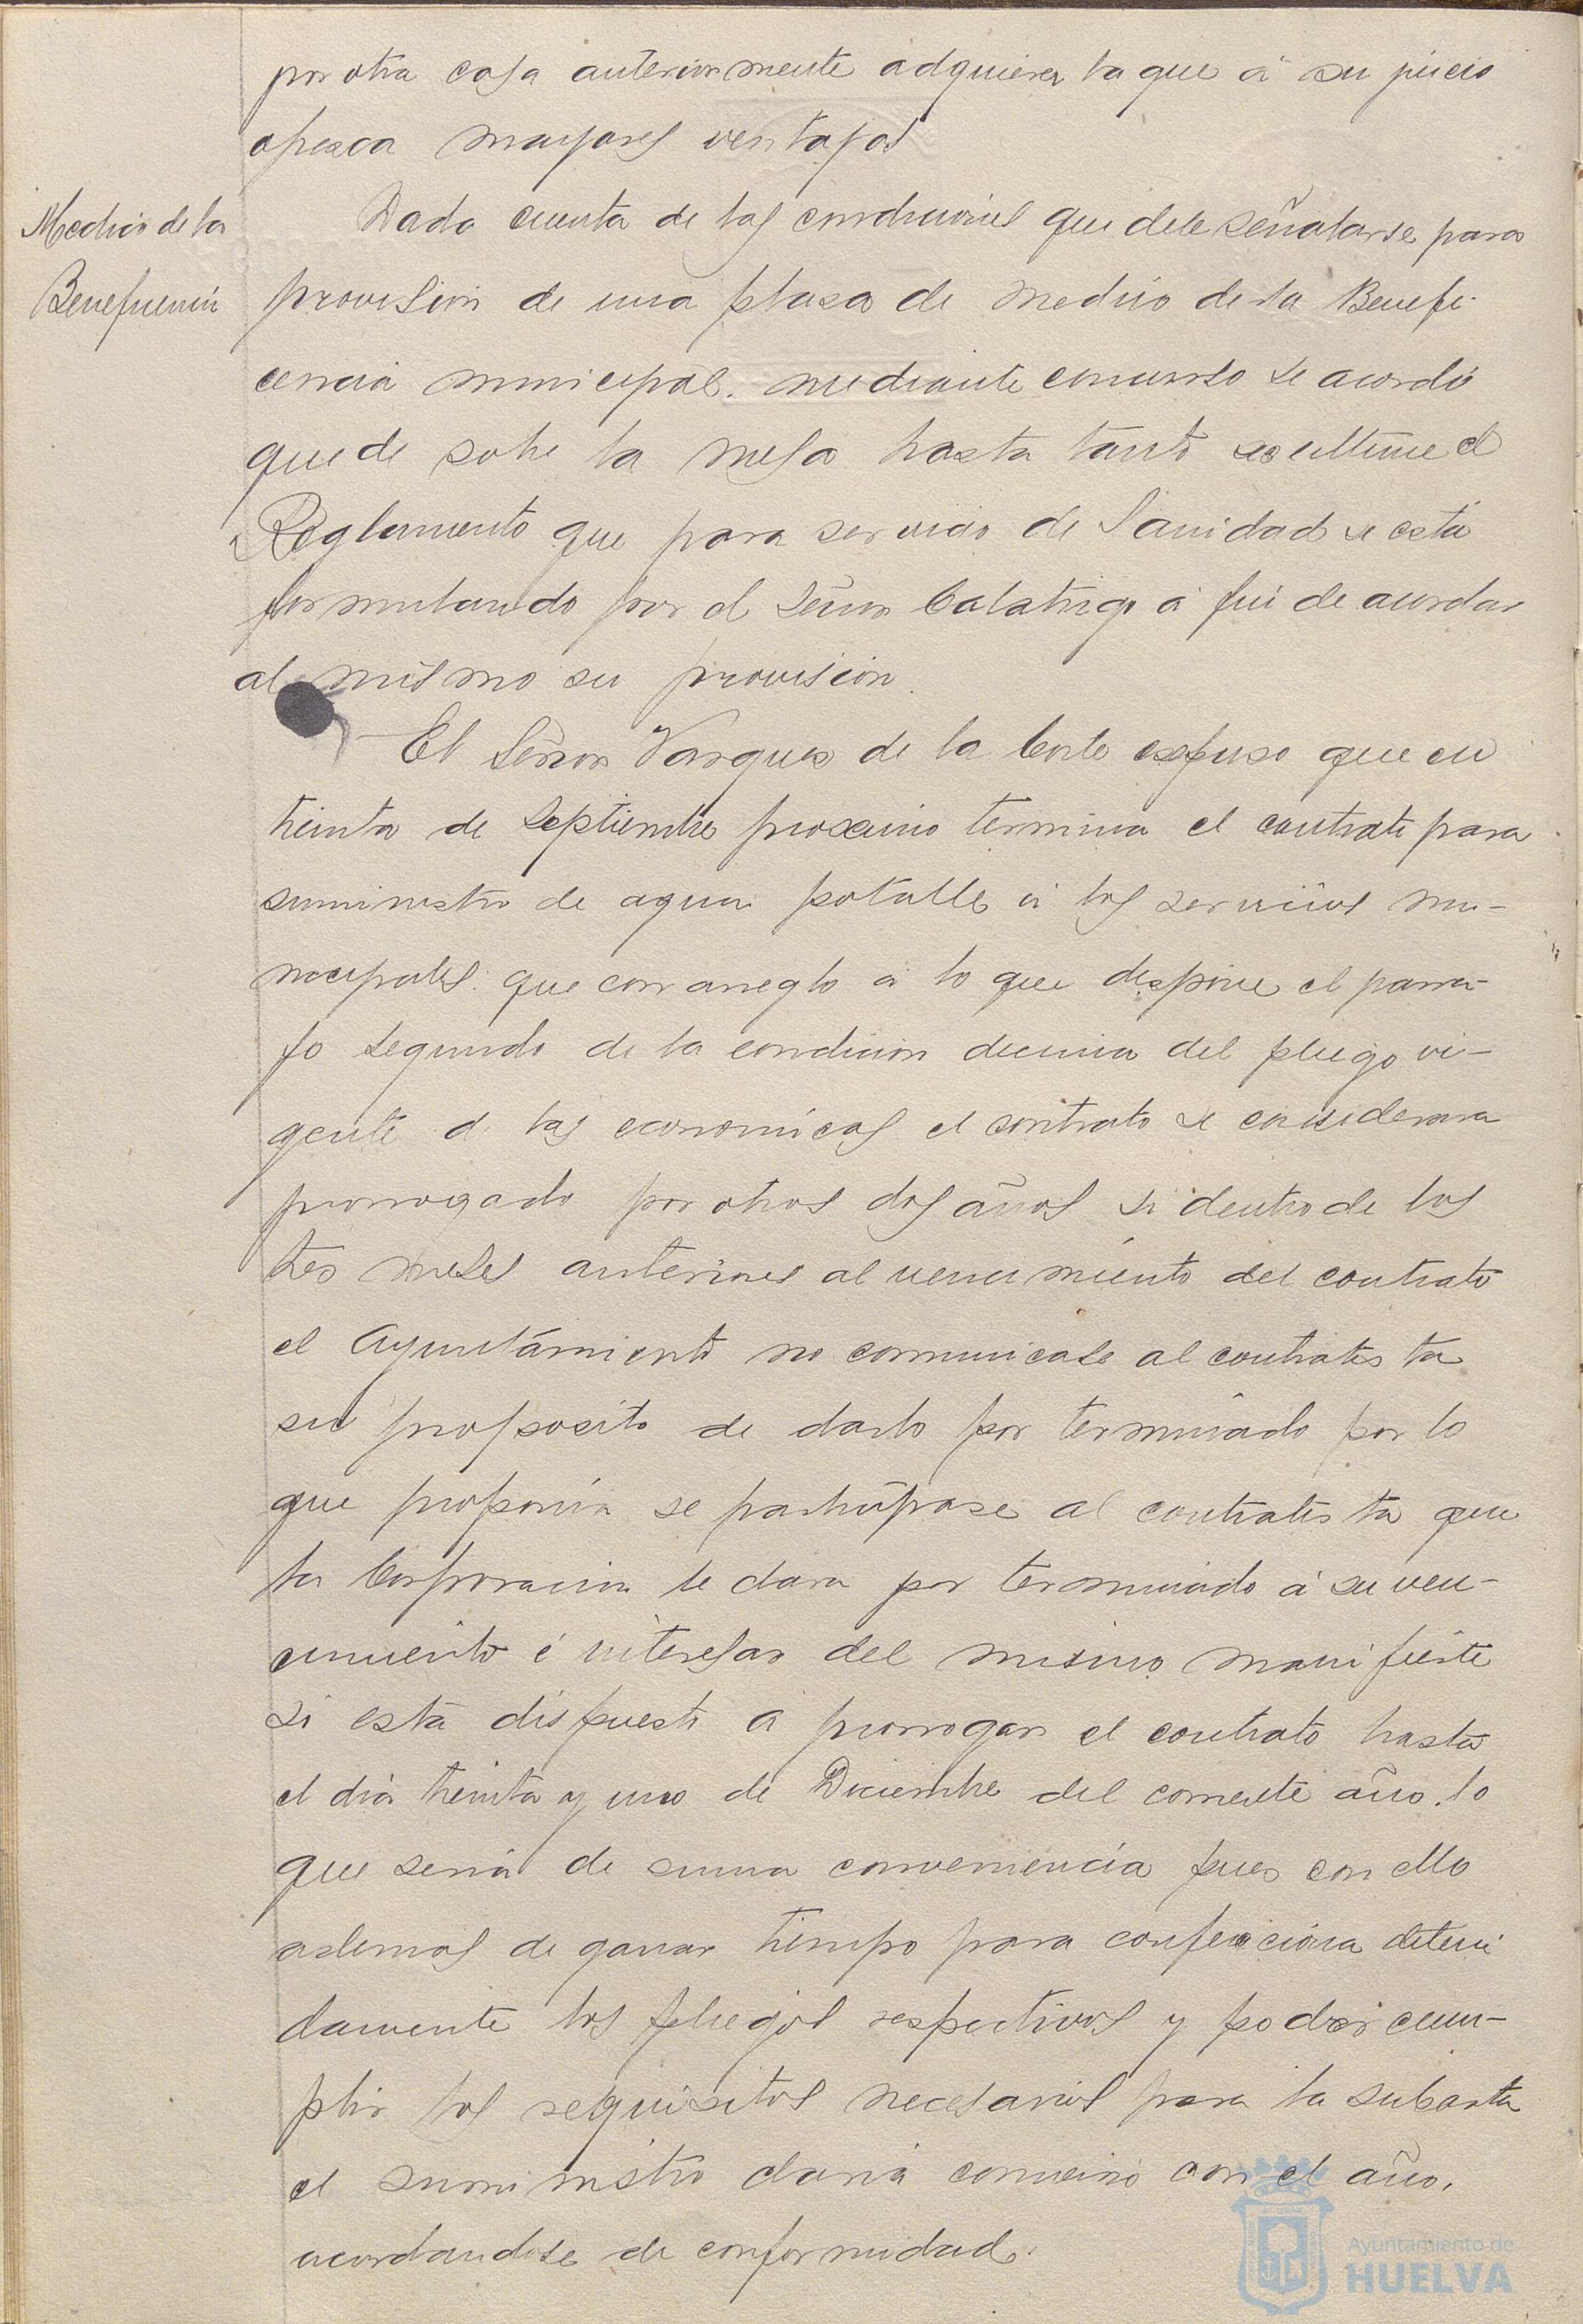 por otra casa anteriormente adquiera la que á su juicio
ofrezca mayores ventajas
Medico de la
Beneficencia
Dada cuenta de las condiciones que debe señalarse para
provision de una plaza de medico de la Benefi-
cencia municipal. mediante concurso se acordó
quede sobre la mesa hasta tanto se ultime el
Reglamento que para servicio de Sanidad se está
formulando por el Señor Calatrigo á fin de acordar
al mismo su provision.
El Señor Vazquez de la Corte expuso que en
treinta de Septiembre proximo termina el contrato para
suministro de agua potable á los servicios mu-
nicipales. que con arreglo á lo que dispone el parra-
fo segundo de la condicion decima del pliego vi-
gente de las económicas el contrato se considerara
prorrogado por otros dos años si dentro de los
tres meses anteriores al vencimiento del contrato
el Ayuntamiento no comunicase al contratista
su proposito de darlo por terminado por lo
que proponia se participase al contratista que
la Corporacion le dara por terminado á su ven-
cimiento é interesar del mismo manifieste
si está dispuesto a prorrogar el contrato hasta
el dia treinta y uno de Diciembre del corriente año. lo
que seria de suma conveniencia pues con ello
ademas de ganar tiempo para confecciona deteni
damente los pliegos respectivos y poder cum-
plir los requisitos necesarios para la subasta
el suministro daria comienzo con el año,
acordandose de conformidad.
Ayuntamiento de
HUELVA